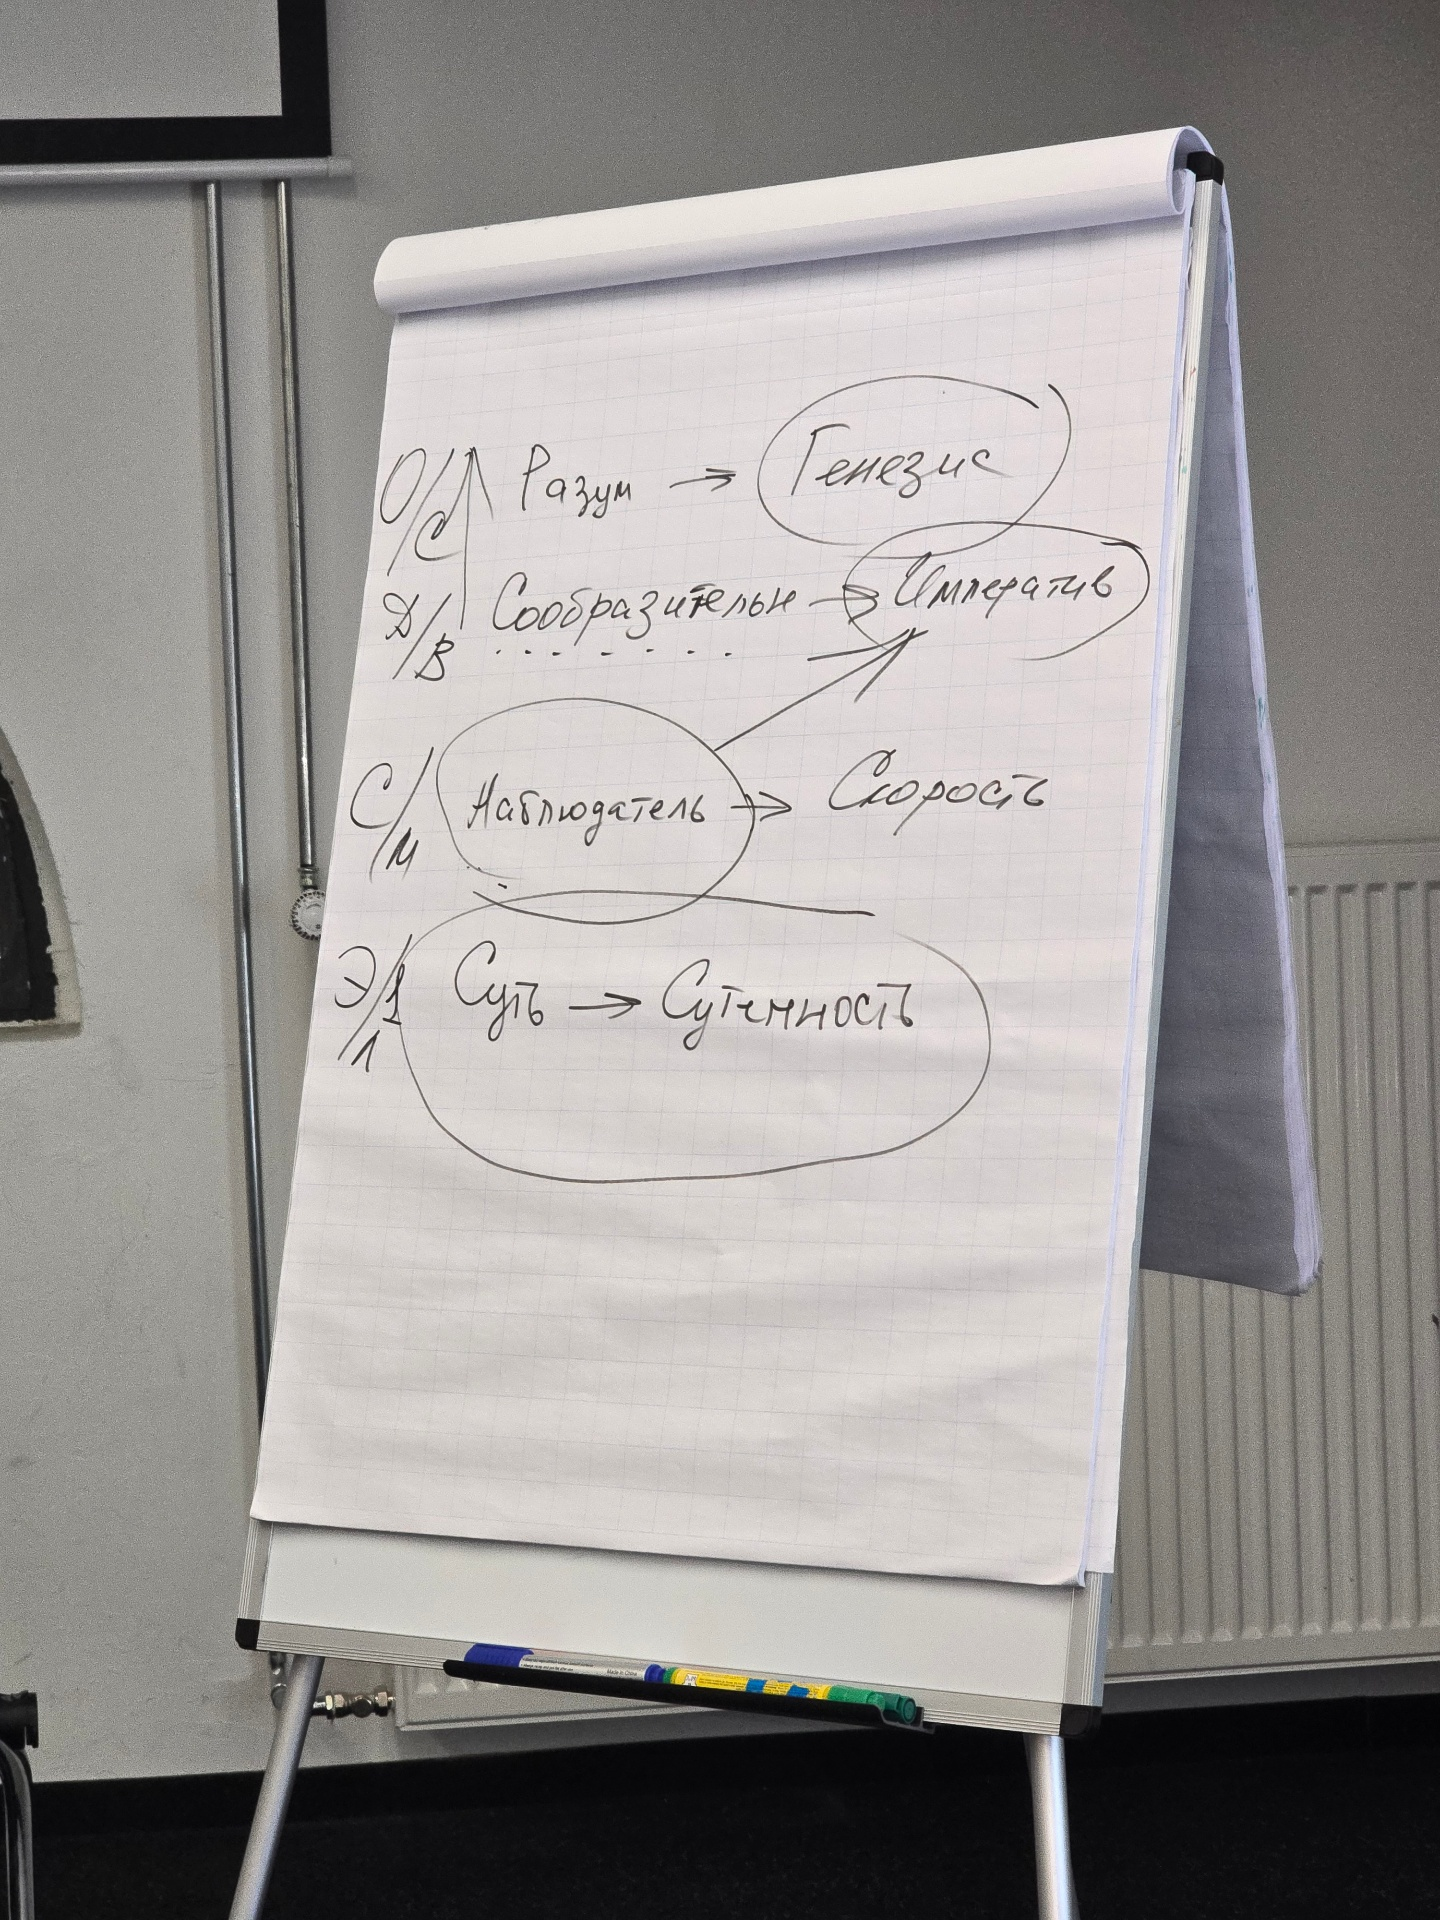 О/С Разум → Генезис
Д/В Сообразительн → Императив
С/М Наблюдатель → Скорость
Э/Л Суть → Сутенность
Made in China